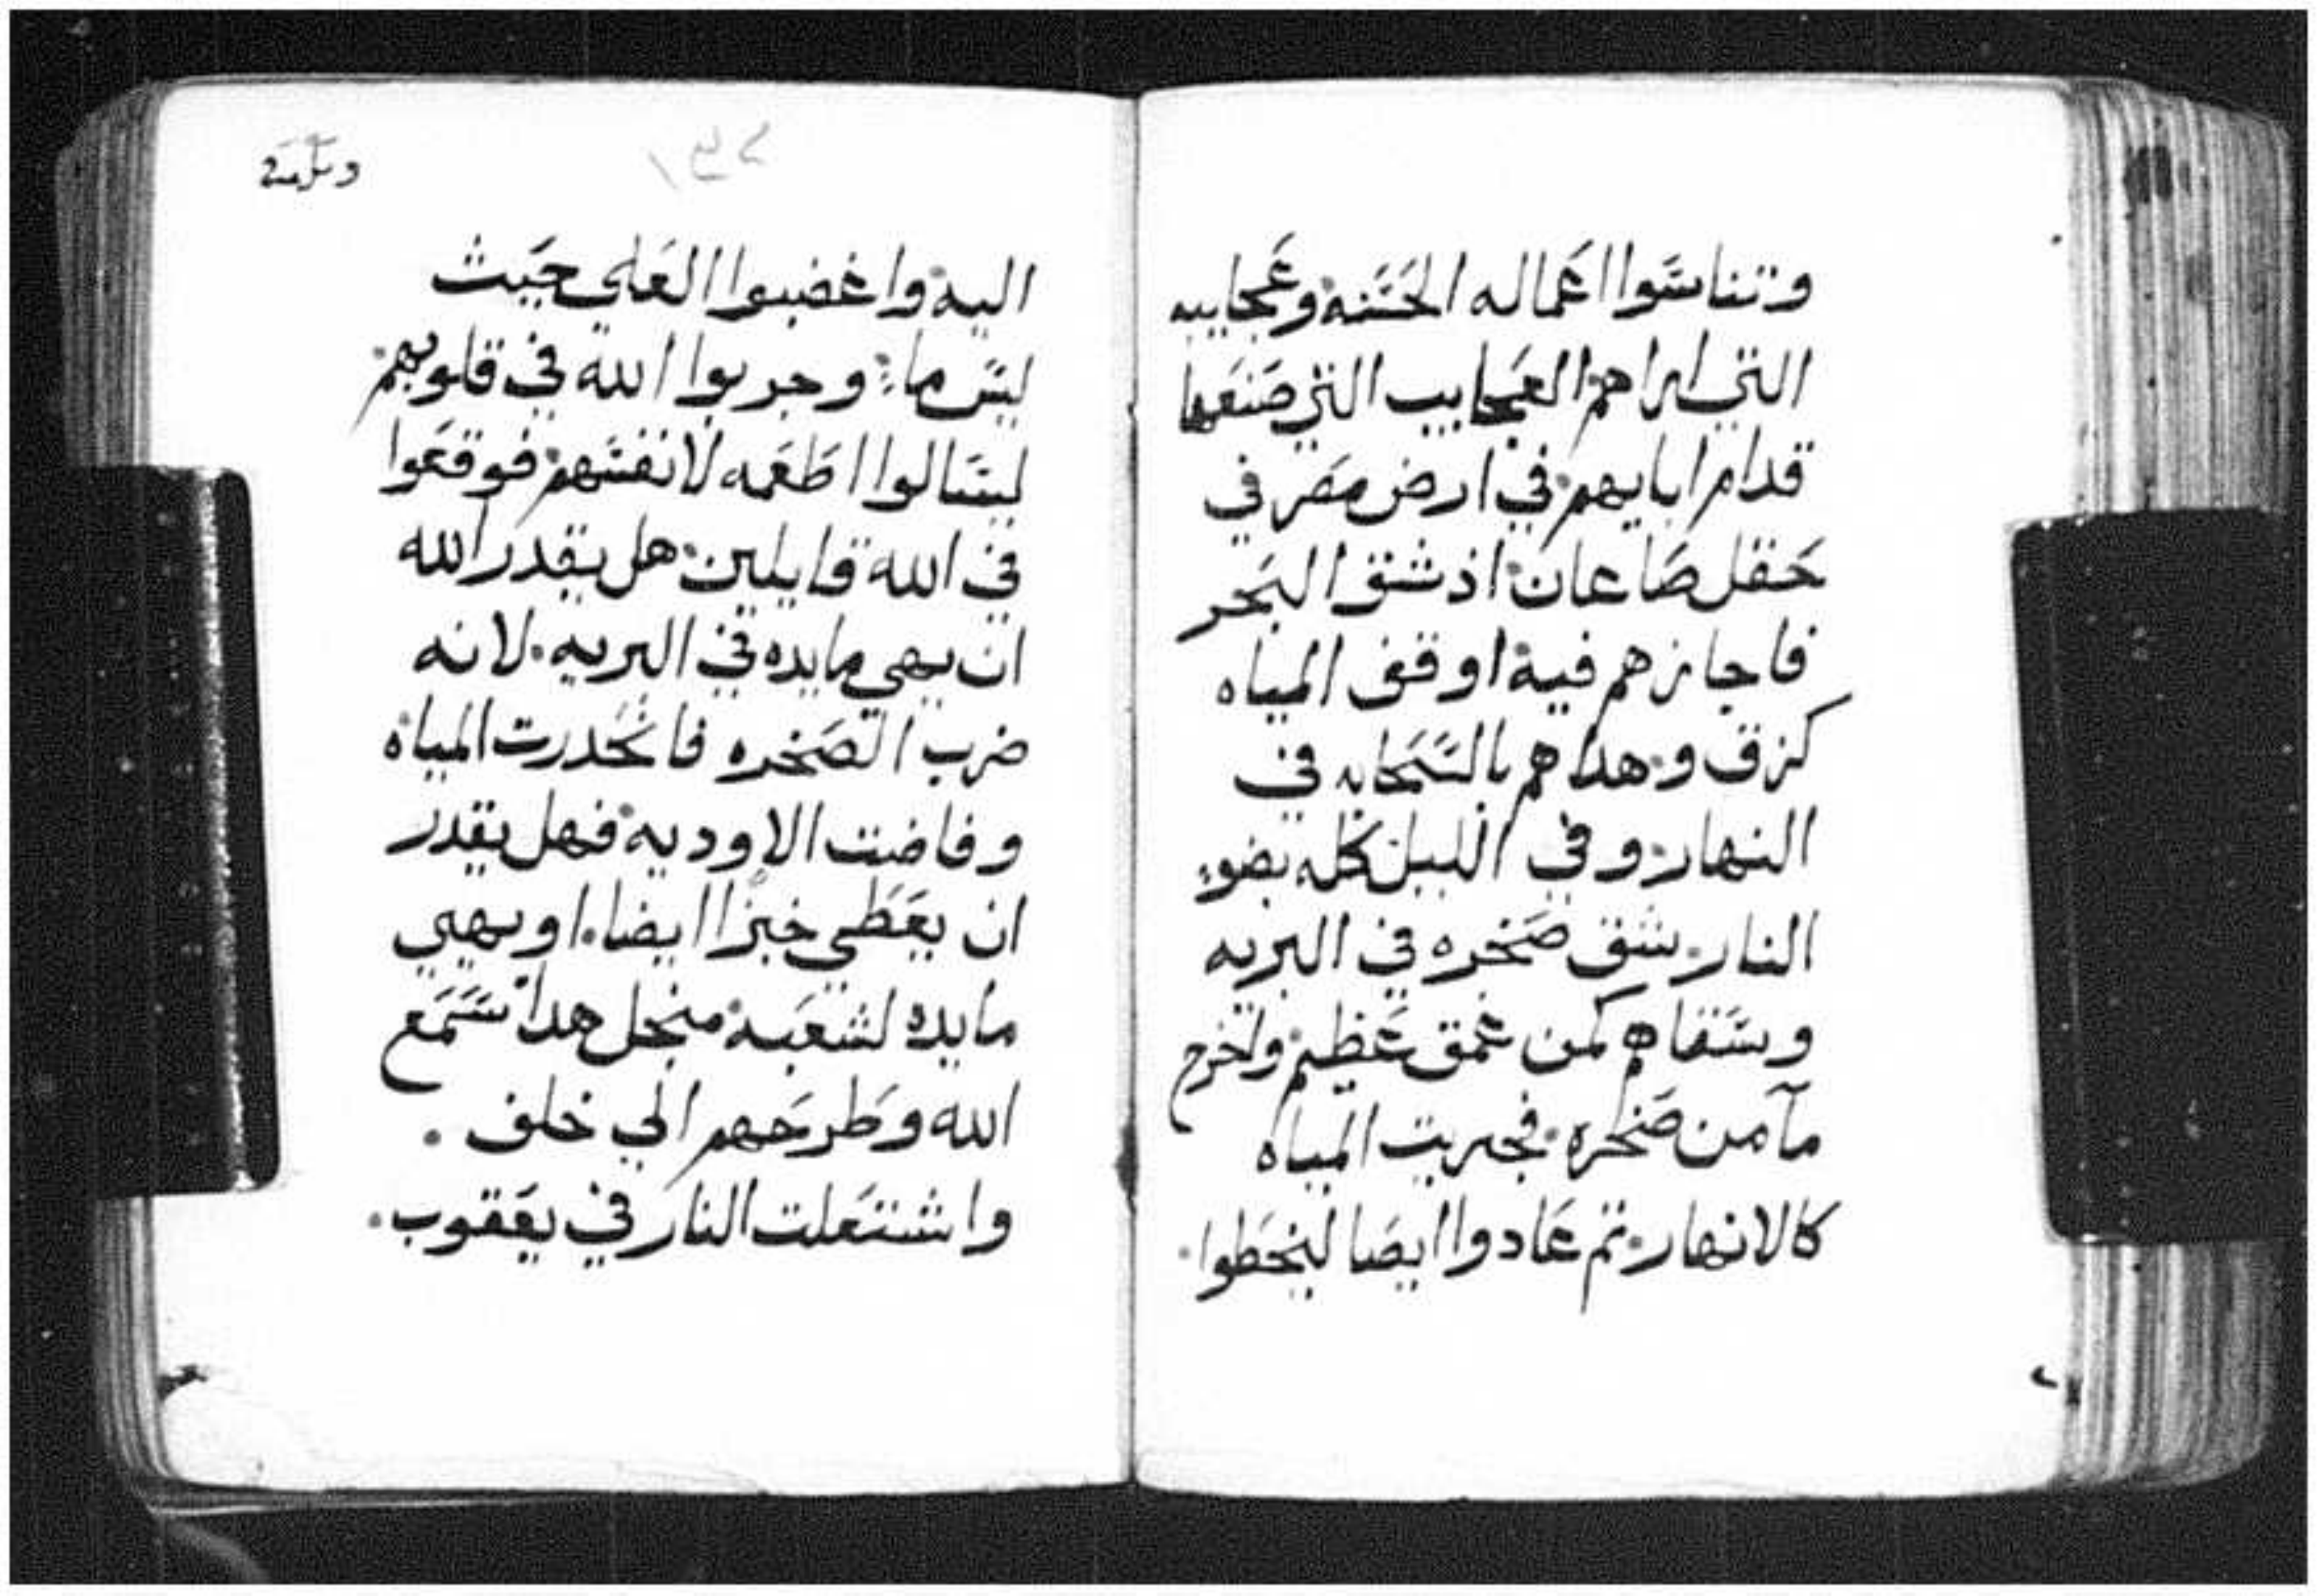 وتناسوا اعماله الحسنه وعجايبه
التي اراهم العجايب التي صنعها
قدام ابايهم في ارض مصر في
حقل صاعان اذ شق البحر
فاجازهم فيه اوقف المياه
كزق وهداهم بالسحابه في
النهار وفي الليل كله بضوء
النار شق صخره في البريه
وسقاهم كمن عمق عظيم واخرج
مآ من صخره فجريت المياه
كالانهار تم عادوا ايضا ليخطوا
اليه واغضبوا العلي حيث
ليس ماء وجربوا الله في قلوبهم
ليسالوا اطعمه لانفسهم فوقعوا
في الله قايلين هل يقدر الله
ان يهي مايده في البريه لانه
ضرب الصخره فانحدرت المياه
وفاضت الاوديه فهل يقدر
ان يعطي خبزا ايضا او يهيي
مايده لشعبه منجل هدا سمع
الله وطرحهم الي خلف
واشتعلت النار في يعقوب